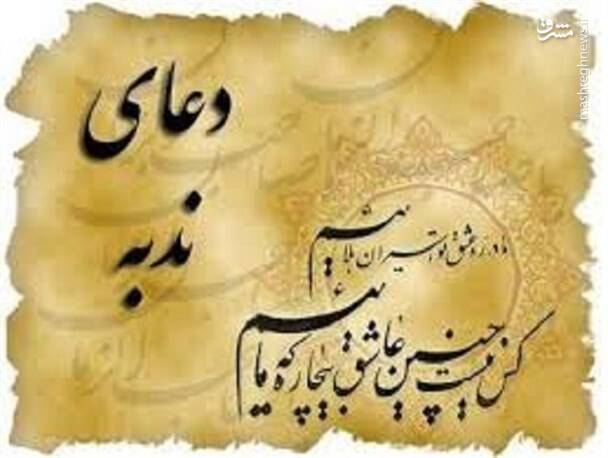 دعای
ندبه
ما در ره عشق تو اسیران بلائیم
کس نیست چنین عاشق بیچاره که مائیم
مشرق
mashreghnews.ir